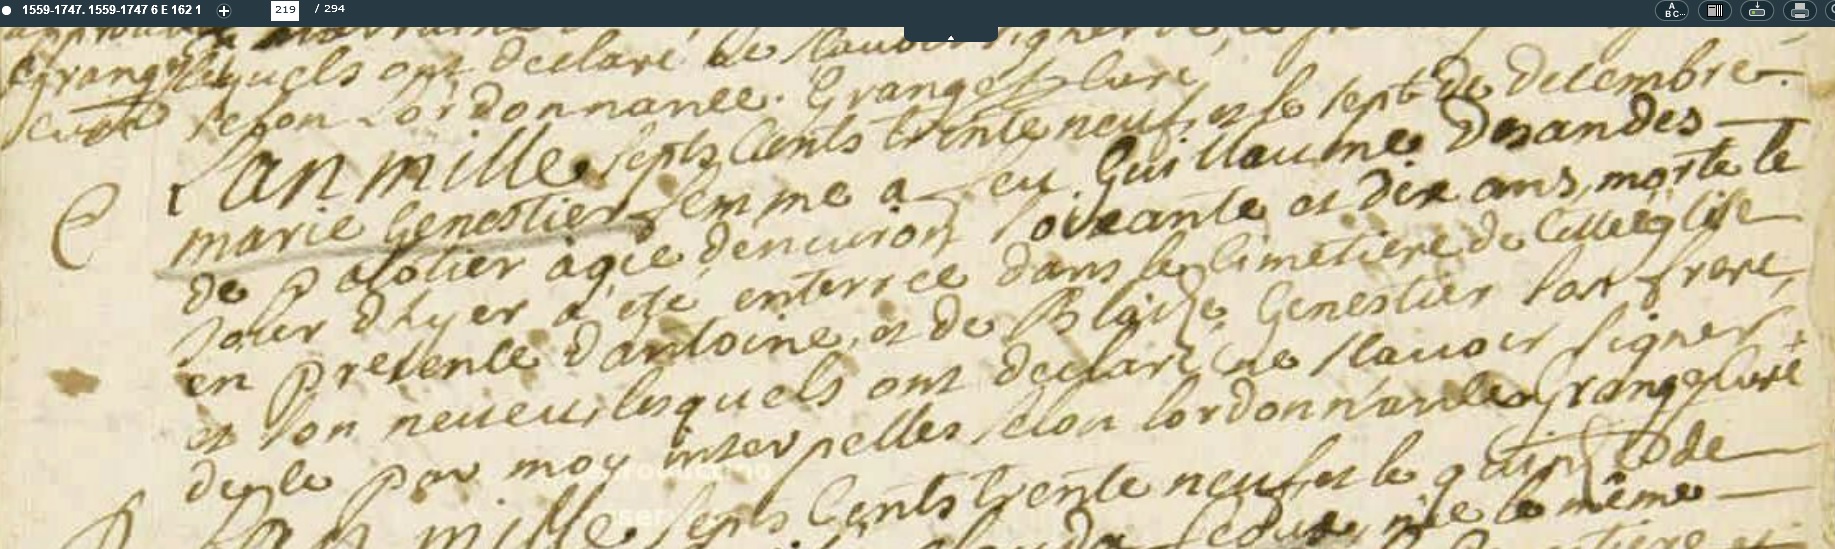 1559-1747. 1559-1747 6 E 162 1 219 / 294
lesquels ont declare ne scavoir signer
curé selon l'ordonnance. Grange curé
L'an mille septs cents trente neuf, et le sept de decembre
marie Genestier femme a feu Guillaume Desandes
de Palotier agée denuiron soixante et dix ans, morte le
jour dhyer a été enterrée dans le cimetiere de cette eglise
en presence d'antoine, et de Blaize Genestier son frere,
et son neueu, lesquels ont declaré ne scauoir signer
de ce par moy interpelles selon lordonnance Grange curé
L'an mille septs cents trente neuf et le quinze de
née le même